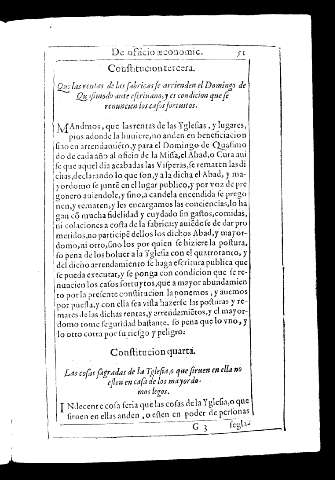 De officio œconomic. 51
Constitucion tercera.
Que las rentas de las fabricas se arrienden el Domingo de
Quasimodo ante escriuano, y es condicion que se
renuncien los casos fortuitos.
MAndmos, que las rentas de las Yglesias, y lugares,
pios adonde la huuiere, no anden en beneficiacion
sino en arrendamiẽto, y para el Domingo de Quasimo
do de cada año al oficio de la Missa, el Abad, o Cura aui
se que aquel dia acabadas las Visperas, se rematen las di
chas, declarando lo que son, y a la dicha el Abad, y ma-
yordomo se juntẽ en el lugar publico, y por voz de pre
gonero auiendole, y sino, a candela encendida se prego
nen, y rematen, y les encargamos las conciencias, lo ha
gan cõ mucha fidelidad y cuydado sin gastos, comidas,
ni colaciones a costa de la fabrica; y auiẽdose de dar pro
metidos, no participẽ dellos los dichos Abad, y mayor-
domo, ni otro, sino los por quien se hiziere la postura,
so pena de los boluer a la Yglesia con el quatrotanto, y
del dicho arrendamiento se haga escritura publica que
se pueda executar, y se ponga con condicion que se re-
nuncien los casos fortuytos, que a mayor abundamien
to por la presente constitucion la ponemos, y auemos
por puesta, y con ella sea visto hazerse las posturas y re-
mates de las dichas rentas, y arrendamiẽtos, y el mayor-
domo tome seguridad bastante, so pena que lo vno, y
lo otro corra por su riesgo y peligro.
Constitucion quarta.
Las cosas sagradas de la Yglesia, o que siruen en ella no
esten en casa de los mayordo-
mos legos.
INdecente cosa seria que las cosas de la Yglesia, o que
siruen en ellas anden, o esten en poder de personas
G 3 segla-